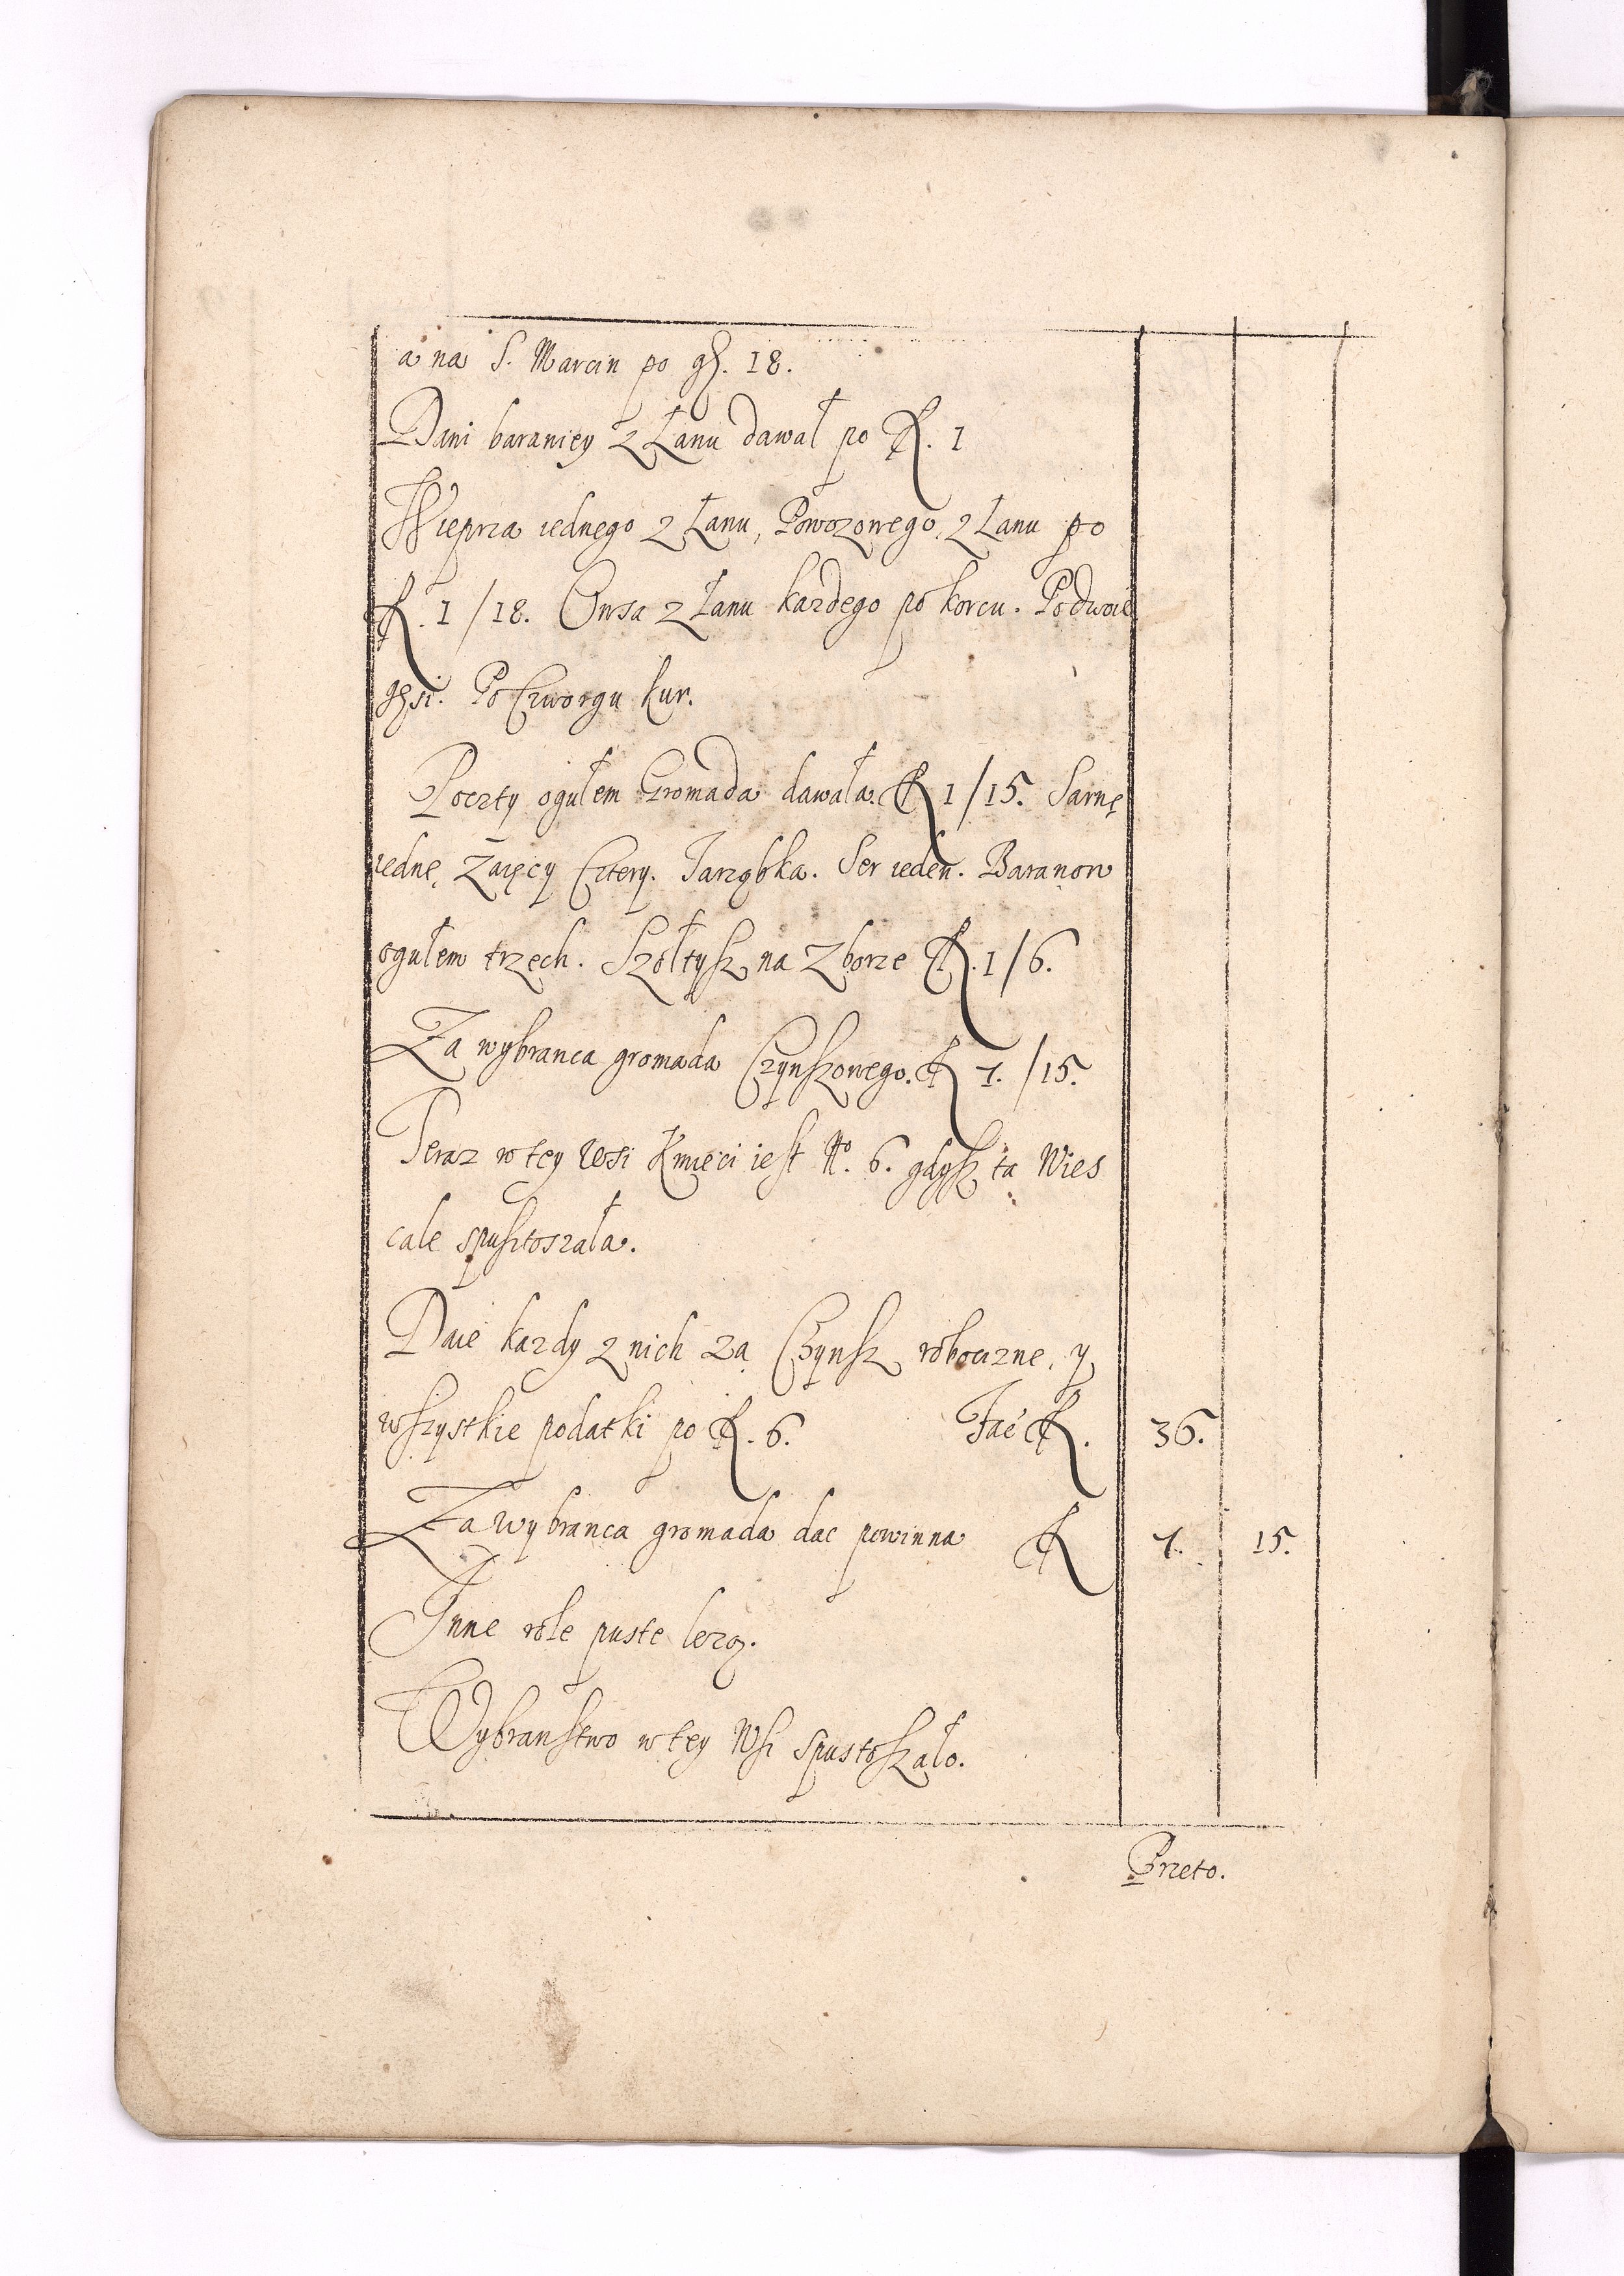 a na S. Marcin po gr. 18.
Dani baraniey z Łanu dawał po fl. 1
Wieprza iednego z Łanu, Powozowego, z Łanu po
fl. 1/18. Owsa z Łanu kazdego po korcu. Po dwoie
gęsi. Po Czworgu kur.
Poczty ogułem Gromada dawała. fl 1/15. Sarnę
iednę, Zaięcy Cztery. Jarząbka. Ser ieden. Baranow
ogułem trzech. Szołtysz na Zborze fl. 1/6.
Za wybranca gromada Czynszowego. fl 7. /15.
Teraz w tey Wsi Kmieci iest No. 6. gdysz ta Wies
cale spusztoszała.
Daie kazdy z nich za Czynsz roboczne, y
wszystkie podatki po fl. 6. Fac fl. 36.
Za wybranca gromada dac powinna fl 7. 15.
Inne role puste lezą.
Wybranstwo w tey Wsi spustoszało.
Przeto.